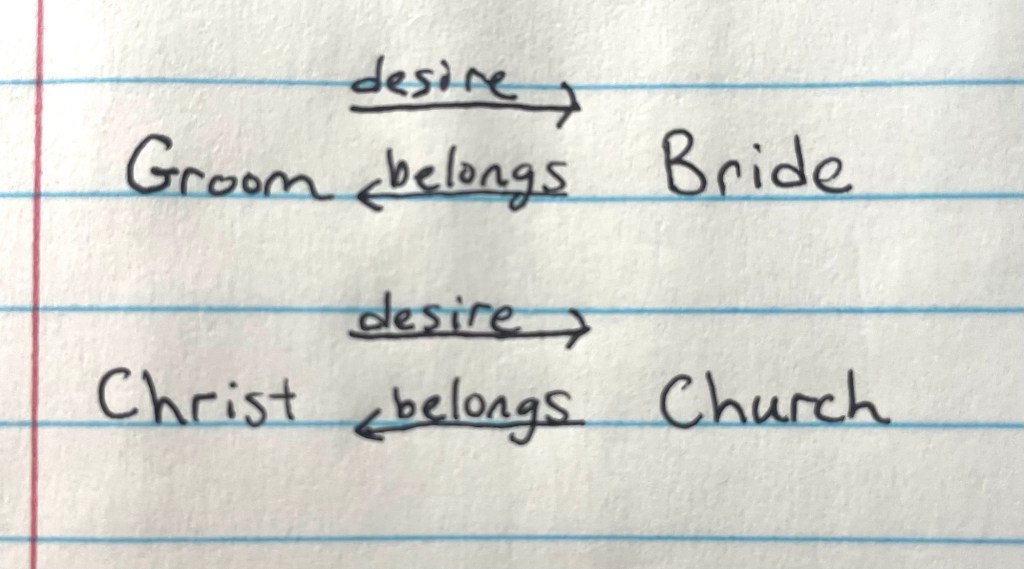 desire
Groom belongs Bride
desire
Christ belongs Church